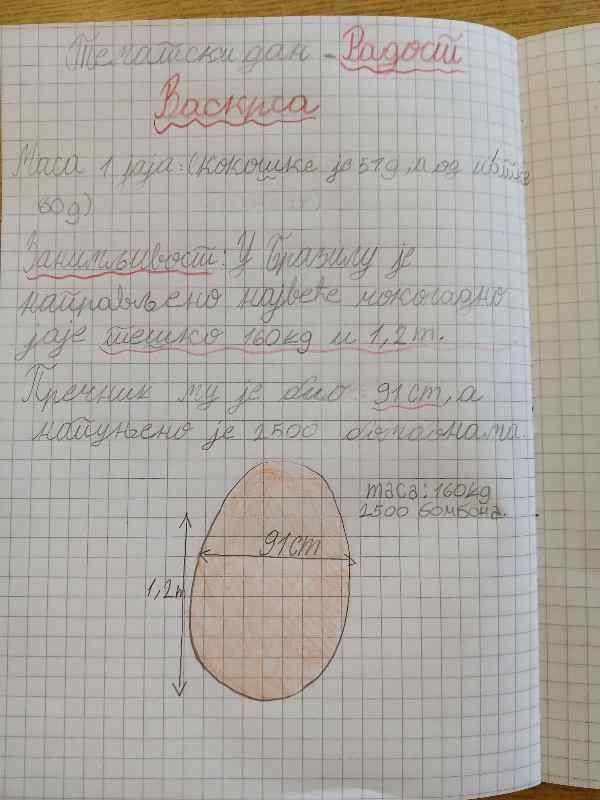 Тематски дан - Радост
Васкрса
Маса 1 јаја: (кокошке је 57g, а од
60g)
Занимљивост: У Бразилу је
направљено највеће чоколадно
јаје тешко 160kg и 1,2m.
Пречник му је био 91cm, а
напуњено је 2500 бомбонама.
маса: 160kg
2500 бомбона.
91cm
1,2m